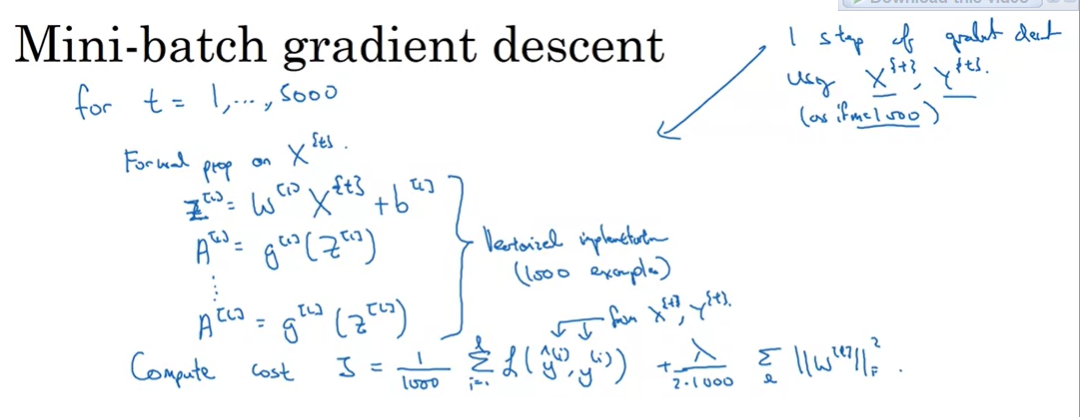 Download this video
Mini-batch gradient descent
1 step of gradient descent
using X^{t}, Y^{t}.
(as if m=1000)
for t = 1,...,5000
Forward prop on X^{t}.
Z^[1] = W^[1] X^{t} + b^[1]
A^[1] = g^[1](Z^[1])
⋮
A^[L] = g^[L](Z^[L])
Vectorized implementation
(1000 examples)
from X^{t}, Y^{t}.
Compute cost J = 1/1000 Σ_{i=1}^{l} L(ŷ^(i), y^(i)) + λ/(2·1000) Σ_l ||W^[l]||_F^2.